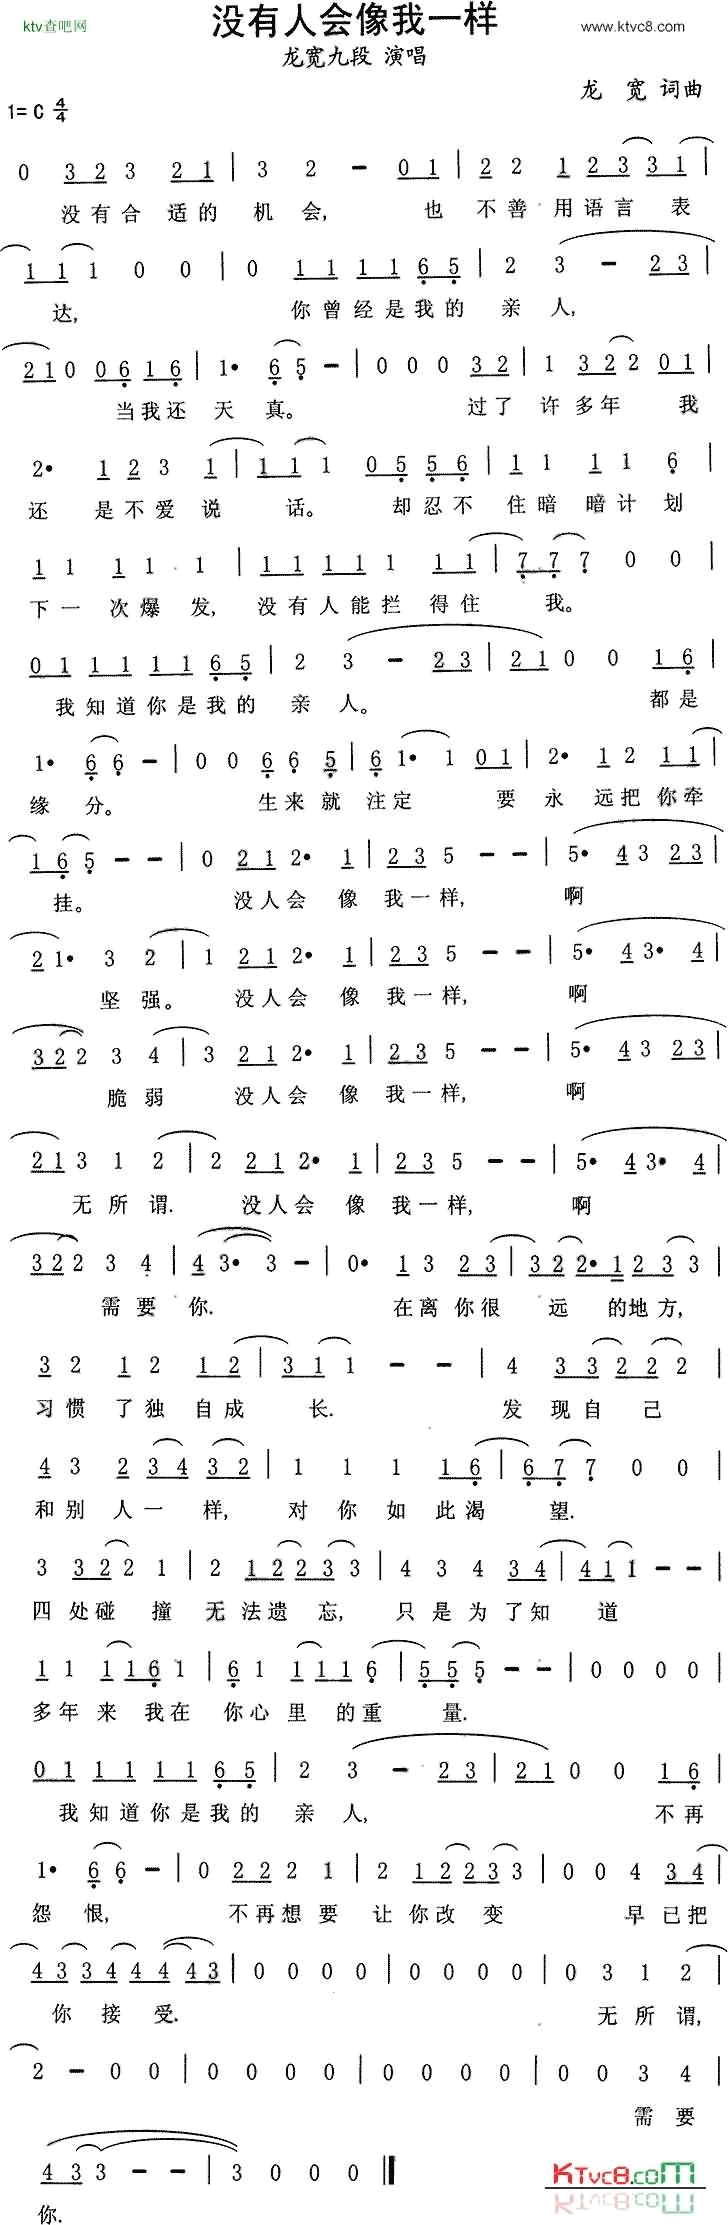 ktv查吧网
没有人会像我一样
www.ktvc8.com
龙宽九段 演唱
龙 宽 词曲
1=C 4/4
0 3 2 3 2 1 | 3 2 - 0 1 | 2 2 1 2 3 3 1 |
没有合适的 机会, 也 不善用语言 表
1 1 1 0 0 | 0 1 1 1 1 6 5 | 2 3 - 2 3 |
达, 你曾经是我的 亲人,
2 1 0 0 6 1 6 | 1• 6 5 - | 0 0 0 3 2 | 1 3 2 2 0 1 |
当我还 天 真。 过了 许多年 我
2• 1 2 3 1 | 1 1 1 0 5 5 6 | 1 1 1 1 6 |
还 是不爱 说 话。 却忍不 住暗 暗计 划
1 1 1 1 1 | 1 1 1 1 1 1 1 | 7 7 7 0 0 |
下一 次爆 发, 没有人能拦 得住 我。
0 1 1 1 1 1 6 5 | 2 3 - 2 3 | 2 1 0 0 1 6 |
我知道你是我的 亲 人。 都是
1• 6 6 - | 0 0 6 6 5 | 6 1• 1 0 1 | 2• 1 2 1 1 |
缘 分。 生来就 注定 要 永 远把你牵
1 6 5 - - | 0 2 1 2• 1 | 2 3 5 - - | 5• 4 3 2 3 |
挂。 没人会 像 我一样, 啊
2 1• 3 2 | 1 2 1 2• 1 | 2 3 5 - - | 5• 4 3• 4 |
坚强。 没人会 像 我一样, 啊
3 2 2 3 4 | 3 2 1 2• 1 | 2 3 5 - - | 5• 4 3 2 3 |
脆弱 没人会 像 我一样, 啊
2 1 3 1 2 | 2 2 1 2• 1 | 2 3 5 - - | 5• 4 3• 4 |
无所谓. 没人会 像 我一样, 啊
3 2 2 3 4 | 4 3• 3 - | 0• 1 3 2 3 | 3 2 2• 1 2 3 3 |
需要 你. 在离你很 远 的地方,
3 2 1 2 1 2 | 3 1 1 - - | 4 3 3 2 2 2 |
习惯 了独 自成 长. 发 现自 己
4 3 2 3 4 3 2 | 1 1 1 1 6 | 6 7 7 0 0 |
和别 人一 样, 对你如此渴 望.
3 3 2 2 1 | 2 1 2 2 3 3 | 4 3 4 3 4 | 4 1 1 - - |
四处碰 撞 无法遗 忘, 只是为了知 道
1 1 1 1 6 1 | 6 1 1 1 1 6 | 5 5 5 - - | 0 0 0 0 |
多年来 我在 你心里 的重 量.
0 1 1 1 1 1 6 5 | 2 3 - 2 3 | 2 1 0 0 1 6 |
我知道你是我的 亲人, 不再
1• 6 6 - | 0 2 2 2 1 | 2 1 2 2 3 3 | 0 0 4 3 4 |
怨 恨, 不再想要 让你改 变 早已把
4 3 3 4 4 4 4 3 | 0 0 0 0 | 0 0 0 0 | 0 3 1 2 |
你 接 受. 无所谓,
2 - 0 0 | 0 0 0 0 | 0 0 0 0 | 0 0 3 4 |
需要
4 3 3 - - | 3 0 0 0 ‖
你.
KTvc8.com